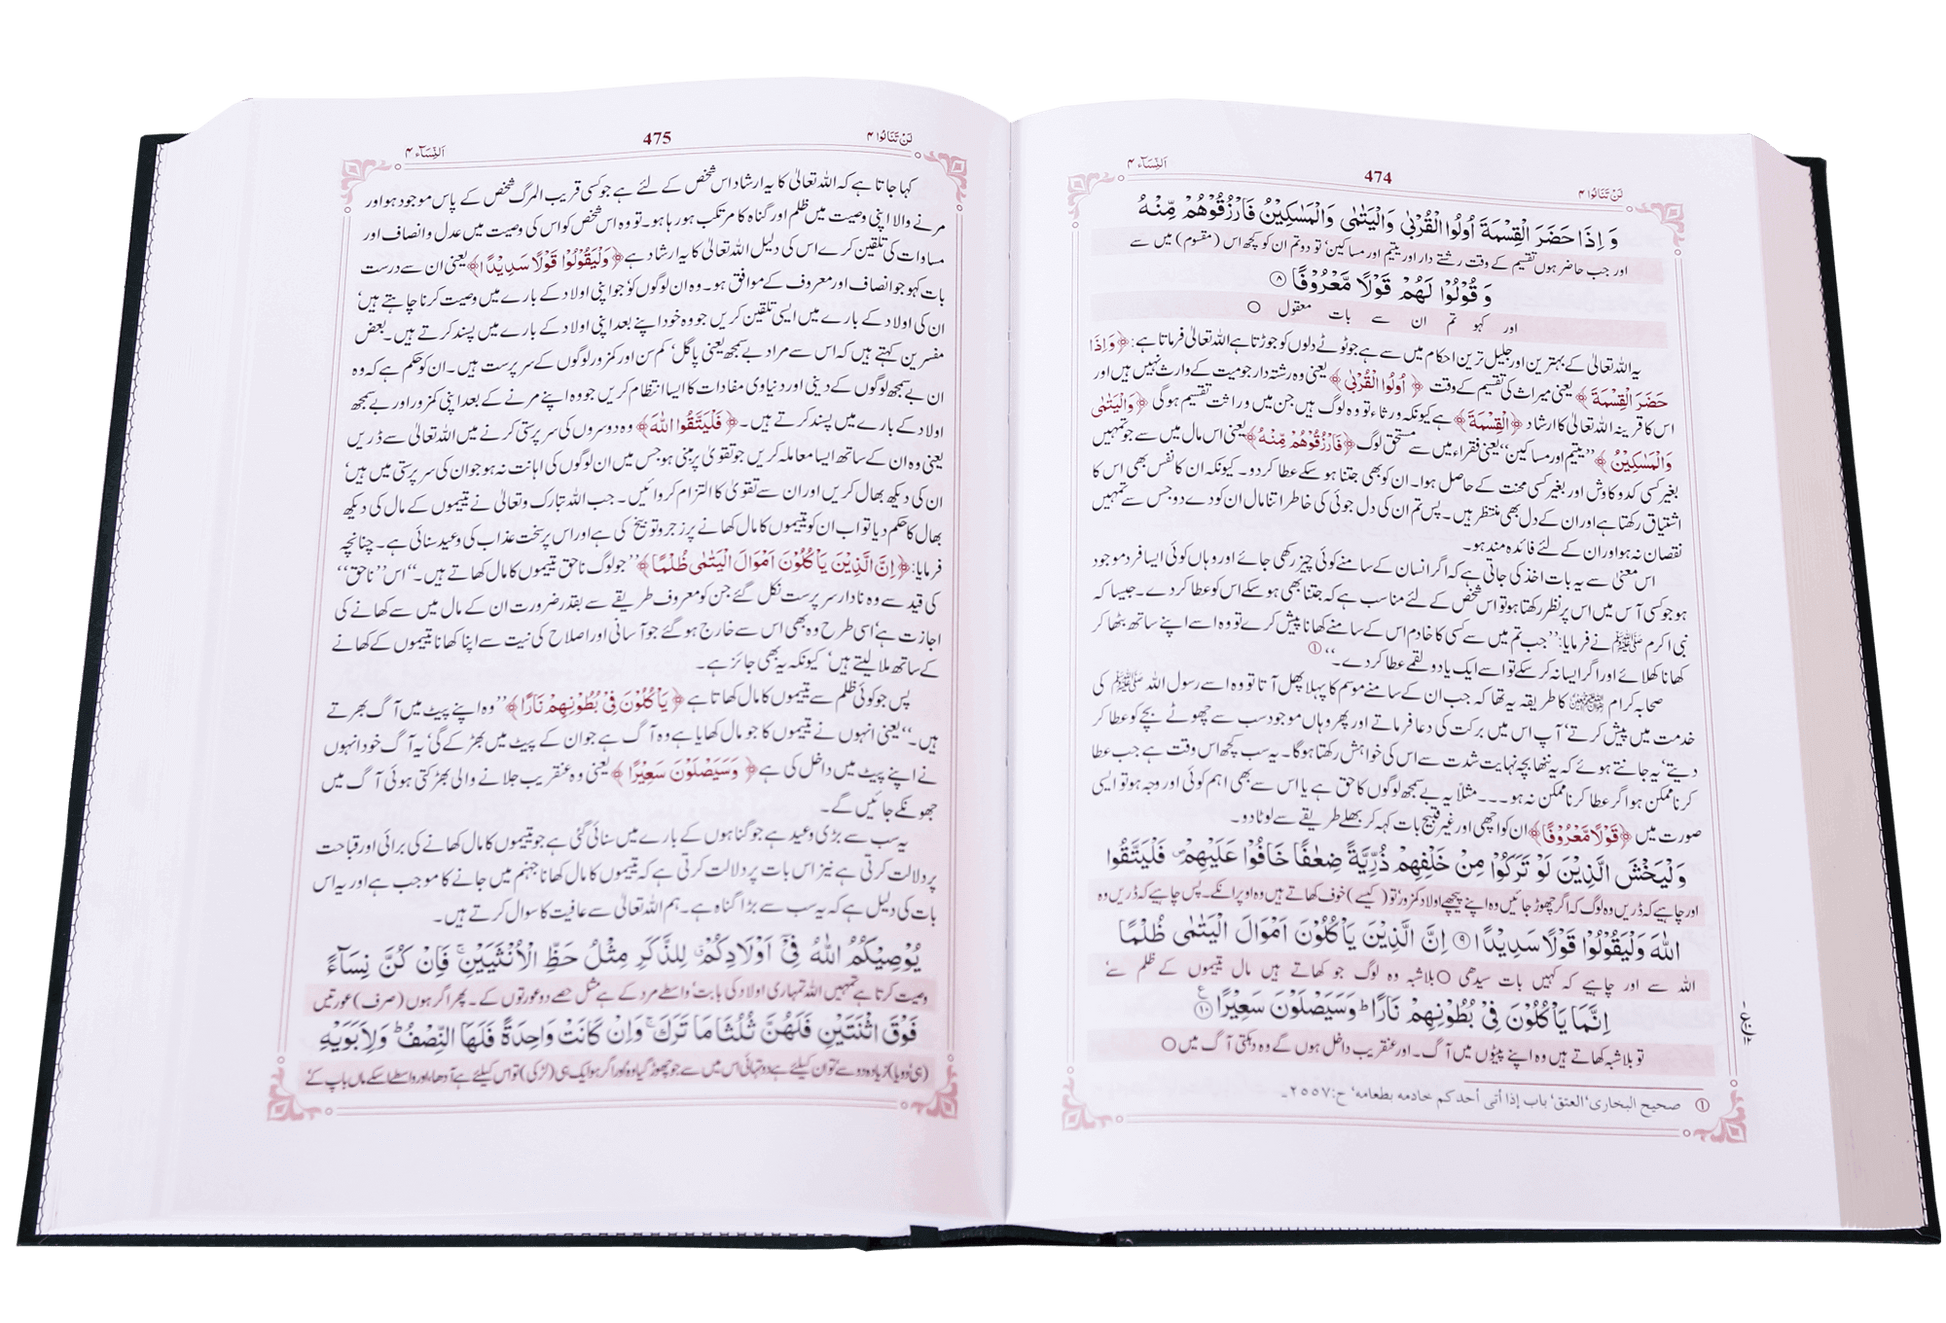 لَنْ تَنَالُوا ۴
474
اَلنِّسَآء ۴
وَ اِذَا حَضَرَ الْقِسْمَةَ اُولُوا الْقُرْبٰى وَالْيَتٰمٰى وَالْمَسٰكِيْنُ فَارْزُقُوْهُمْ مِّنْهُ
اور جب حاضر ہوں تقسیم کے وقت رشتے دار اور یتیم اور مساکین' تو دو تم ان کو کچھ اس (مقسوم) میں سے
وَ قُوْلُوْا لَهُمْ قَوْلًا مَّعْرُوْفًا ۝۸
اور کہو تم ان سے بات معقول ○
یہ اللہ تعالیٰ کے بہترین اور جلیل ترین احکام میں سے ہے جو ٹوٹے دلوں کو جوڑتا ہے اللہ تعالیٰ فرماتا ہے: ﴿وَاِذَا
حَضَرَ الْقِسْمَةَ﴾ یعنی میراث کی تقسیم کے وقت ﴿اُولُوا الْقُرْبٰى﴾ یعنی وہ رشتہ دار جو میت کے وارث نہیں ہیں اور
اس کا قرینہ اللہ تعالیٰ کا ارشاد ﴿الْقِسْمَةَ﴾ ہے کیونکہ ورثاء تو وہ لوگ ہیں جن میں وراثت تقسیم ہو گی ﴿وَالْيَتٰمٰى
وَالْمَسٰكِيْنُ﴾ ”یتیم اور مساکین“ یعنی فقراء میں سے مستحق لوگ ﴿فَارْزُقُوْهُمْ مِّنْهُ﴾ یعنی اس مال میں سے جو تمہیں
بغیر کسی کد و کاوش اور بغیر کسی محنت کے حاصل ہوا۔ ان کو بھی جتنا ہو سکے عطا کر دو۔ کیونکہ ان کا نفس بھی اس کا
اشتیاق رکھتا ہے اور ان کے دل بھی منتظر ہیں۔ پس تم ان کی دل جوئی کی خاطر اتنا مال ان کو دے دو جس سے تمہیں
نقصان نہ ہو اور ان کے لئے فائدہ مند ہو۔
اس معنی سے یہ بات اخذ کی جاتی ہے کہ اگر انسان کے سامنے کوئی چیز رکھی جائے اور وہاں کوئی ایسا فرد موجود
ہو جو کسی آس میں اس پر نظر رکھتا ہو تو اس شخص کے لئے مناسب ہے کہ جتنا بھی ہو سکے اس کو عطا کر دے۔ جیسا کہ
نبی اکرم ﷺ نے فرمایا: ”جب تم میں سے کسی کا خادم اس کے سامنے کھانا پیش کرے تو وہ اسے اپنے ساتھ بٹھا کر
کھانا کھلائے اور اگر ایسا نہ کر سکے تو اسے ایک یا دو لقمے عطا کر دے۔“ ①
صحابہ کرام کا طریقہ یہ تھا کہ جب ان کے سامنے موسم کا پہلا پھل آتا تو وہ اسے رسول اللہ ﷺ کی
خدمت میں پیش کرتے' آپ اس میں برکت کی دعا فرماتے اور پھر وہاں موجود سب سے چھوٹے بچے کو عطا کر
دیتے' یہ جانتے ہوئے کہ یہ ننھا بچہ نہایت شدت سے اس کی خواہش رکھتا ہوگا۔ یہ سب کچھ اس وقت ہے جب عطا
کرنا ممکن ہو اگر عطا کرنا ممکن نہ ہو ۔۔۔ مثلاً یہ بے سمجھ لوگوں کا حق ہے یا اس سے بھی اہم کوئی اور وجہ ہو تو ایسی
صورت میں ﴿قَوْلًا مَّعْرُوْفًا﴾ ان کو اچھی اور غیر قبیح بات کہہ کر بھلے طریقے سے لوٹا دو۔
وَلْيَخْشَ الَّذِيْنَ لَوْ تَرَكُوْا مِنْ خَلْفِهِمْ ذُرِّيَّةً ضِعٰفًا خَافُوْا عَلَيْهِمْ ۪ فَلْيَتَّقُوا
اور چاہیے کہ ڈریں وہ لوگ کہ اگر چھوڑ جائیں وہ اپنے پیچھے اولاد کمزور' تو (کیسے) خوف کھاتے ہیں وہ اوپر انکے۔ پس چاہیے کہ ڈریں وہ
اللّٰهَ وَلْيَقُوْلُوْا قَوْلًا سَدِيْدًا ۝۹ اِنَّ الَّذِيْنَ يَاْكُلُوْنَ اَمْوَالَ الْيَتٰمٰى ظُلْمًا
اللہ سے اور چاہیے کہ کہیں بات سیدھی ○ بلاشبہ وہ لوگ جو کھاتے ہیں مال یتیموں کے ظلم سے'
اِنَّمَا يَاْكُلُوْنَ فِيْ بُطُوْنِهِمْ نَارًا ؕ وَسَيَصْلَوْنَ سَعِيْرًا ۝۱۰ ع
تو بلاشبہ کھاتے ہیں وہ اپنے پیٹوں میں آگ۔ اور عنقریب داخل ہوں گے وہ دہکتی آگ میں ○
① صحیح البخاری' العتق' باب إذا أتى أحدكم خادمه بطعامه' ح: ٢٥٥٧۔
لَنْ تَنَالُوا ۴
475
اَلنِّسَآء ۴
کہا جاتا ہے کہ اللہ تعالیٰ کا یہ ارشاد اس شخص کے لئے ہے جو کسی قریب المرگ شخص کے پاس موجود ہو اور
مرنے والا اپنی وصیت میں ظلم اور گناہ کا مرتکب ہو رہا ہو۔ تو وہ اس شخص کو اس کی وصیت میں عدل و انصاف اور
مساوات کی تلقین کرے اس کی دلیل اللہ تعالیٰ کا یہ ارشاد ہے ﴿وَلْيَقُوْلُوْا قَوْلًا سَدِيْدًا﴾ یعنی ان سے درست
بات کہو جو انصاف اور معروف کے موافق ہو۔ وہ ان لوگوں کو جو اپنی اولاد کے بارے میں وصیت کرنا چاہتے ہیں'
ان کی اولاد کے بارے میں ایسی تلقین کریں جو وہ خود اپنے بعد اپنی اولاد کے بارے میں پسند کرتے ہیں۔ بعض
مفسرین کہتے ہیں کہ اس سے مراد بے سمجھ یعنی پاگل' کم سن اور کمزور لوگوں کے سرپرست ہیں۔ ان کو حکم ہے کہ وہ
ان بے سمجھ لوگوں کے دینی اور دنیاوی مفادات کا ایسا انتظام کریں جو وہ اپنے مرنے کے بعد اپنی کمزور اور بے سمجھ
اولاد کے بارے میں پسند کرتے ہیں۔ ﴿فَلْيَتَّقُوا اللّٰهَ﴾ وہ دوسروں کی سرپرستی کرنے میں اللہ تعالیٰ سے ڈریں
یعنی وہ ان کے ساتھ ایسا معاملہ کریں جو تقویٰ پر مبنی ہو جس میں ان لوگوں کی اہانت نہ ہو جو ان کی سرپرستی میں ہیں'
ان کی دیکھ بھال کریں اور ان سے تقویٰ کا التزام کروائیں۔ جب اللہ تبارک وتعالیٰ نے یتیموں کے مال کی دیکھ
بھال کا حکم دیا تو اب ان کو یتیموں کا مال کھانے پر زجر و توبیخ کی ہے اور اس پر سخت عذاب کی وعید سنائی ہے۔ چنانچہ
فرمایا: ﴿اِنَّ الَّذِيْنَ يَاْكُلُوْنَ اَمْوَالَ الْيَتٰمٰى ظُلْمًا﴾ ”جو لوگ ناحق یتیموں کا مال کھاتے ہیں۔“ اس ”ناحق“
کی قید سے وہ نادار سرپرست نکل گئے جن کو معروف طریقے سے بقدر ضرورت ان کے مال میں سے کھانے کی
اجازت ہے' اسی طرح وہ بھی اس سے خارج ہو گئے جو آسانی اور اصلاح کی نیت سے اپنا کھانا یتیموں کے کھانے
کے ساتھ ملا لیتے ہیں' کیونکہ یہ بھی جائز ہے۔
پس جو کوئی ظلم سے یتیموں کا مال کھاتا ہے ﴿يَاْكُلُوْنَ فِيْ بُطُوْنِهِمْ نَارًا﴾ ”وہ اپنے پیٹ میں آگ بھرتے
ہیں۔“ یعنی انہوں نے یتیموں کا جو مال کھایا ہے وہ آگ ہے جو ان کے پیٹ میں بھڑکے گی' یہ آگ خود انہوں
نے اپنے پیٹ میں داخل کی ہے ﴿وَسَيَصْلَوْنَ سَعِيْرًا﴾ یعنی وہ عنقریب جلانے والی بھڑکتی ہوئی آگ میں
جھونکے جائیں گے۔
یہ سب سے بڑی وعید ہے جو گناہوں کے بارے میں سنائی گئی ہے جو یتیموں کا مال کھانے کی برائی اور قباحت
پر دلالت کرتی ہے نیز اس بات پر دلالت کرتی ہے کہ یتیموں کا مال کھانا جہنم میں جانے کا موجب ہے اور یہ اس
بات کی دلیل ہے کہ یہ سب سے بڑا گناہ ہے۔ ہم اللہ تعالیٰ سے عافیت کا سوال کرتے ہیں۔
يُوْصِيْكُمُ اللّٰهُ فِيْٓ اَوْلَادِكُمْ ۗ لِلذَّكَرِ مِثْلُ حَظِّ الْاُنْثَيَيْنِ ۚ فَاِنْ كُنَّ نِسَآءً
وصیت کرتا ہے تمہیں اللہ تمہاری اولاد کی بابت' واسطے مرد کے ہے مثل حصے دو عورتوں کے۔ پھر اگر ہوں (صرف) عورتیں
فَوْقَ اثْنَتَيْنِ فَلَهُنَّ ثُلُثَا مَا تَرَكَ ۚ وَاِنْ كَانَتْ وَاحِدَةً فَلَهَا النِّصْفُ ؕ وَلِاَبَوَيْهِ
(ہی دو یا) زیادہ دو سے تو ان کیلئے ہے دو تہائی اس میں سے جو چھوڑ گیا وہ اور اگر ہو ایک ہی (لڑکی) تو اس کیلئے ہے آدھا، اور واسطے اسکے ماں باپ کے